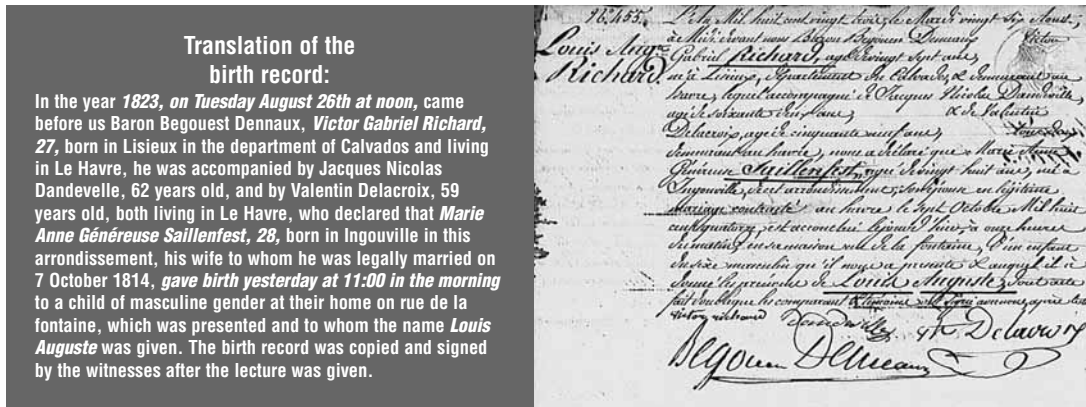 Translation of the
birth record:
In the year 1823, on Tuesday August 26th at noon, came
before us Baron Begouest Dennaux, Victor Gabriel Richard,
27, born in Lisieux in the department of Calvados and living
in Le Havre, he was accompanied by Jacques Nicolas
Dandevelle, 62 years old, and by Valentin Delacroix, 59
years old, both living in Le Havre, who declared that Marie
Anne Généreuse Saillenfest, 28, born in Ingouville in this
arrondissement, his wife to whom he was legally married on
7 October 1814, gave birth yesterday at 11:00 in the morning
to a child of masculine gender at their home on rue de la
fontaine, which was presented and to whom the name Louis
Auguste was given. The birth record was copied and signed
by the witnesses after the lecture was given.
Louis Aug.te
Richard
L'An Mil huit cent vingt trois, le Mardi vingt six Aoust,
à Midi devant nous Baron Begouen Demeaux Victor
Gabriel Richard, agé de vingt sept ans,
né à Lisieux, département du Calvados, & demeurant au
havre, lequel accompagné de Jacques Nicolas
agé de soixante deux ans, & de Valentin
Delacroix, agé de cinquante neuf ans,
demeurant au havre, nous a déclaré que Marie Anne
Généreuse Saillenfest, agée de vingt huit ans, née à
Ingouville, de cet arrondissement, son épouse en légitime
mariage contracté au havre le sept Octobre Mil huit
cent quatorze, est accouchée le jour d'hier, à onze heures
du matin, en sa maison rue de la fontaine, d'un enfant
du sexe masculin qu'il nous a présenté & auquel il a
donné les prénoms de Louis Auguste,
fait double que les comparans témoins ont signé avec nous, après
victor richard
Delacroix
Begouen Demeaux